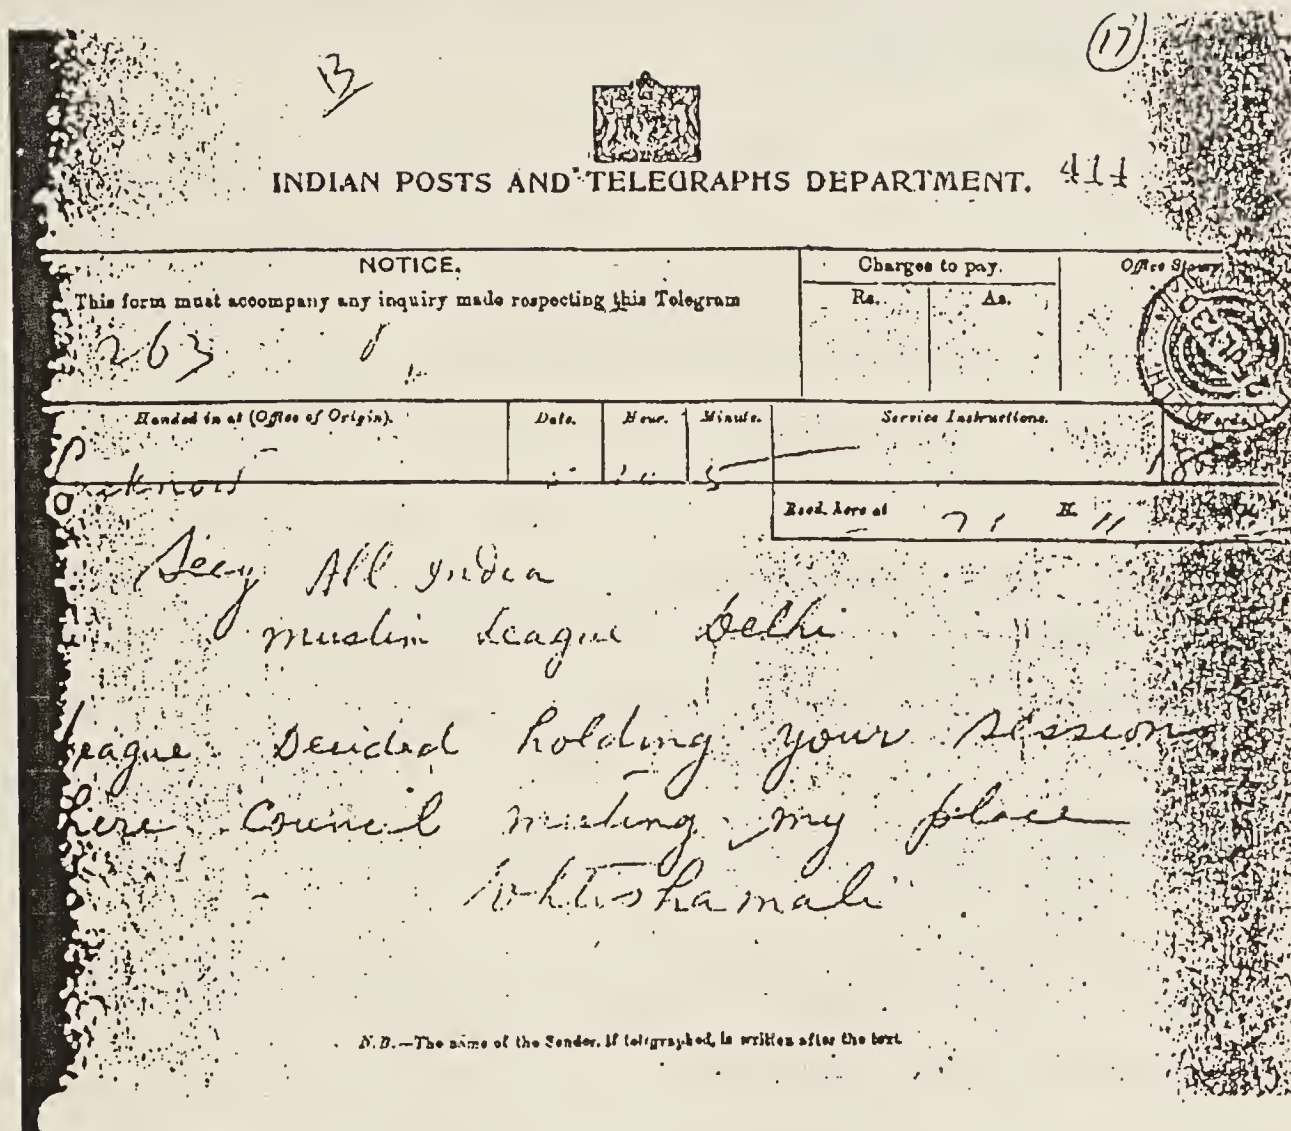 13
17
INDIAN POSTS AND TELEGRAPHS DEPARTMENT.
411
NOTICE.
Charges to pay.
Office Stamp
This form must accompany any inquiry made respecting this Telegram
Rs.
As.
263
Handed in at (Office of Origin).
Date.
Hour.
Minute.
Service Instructions.
Words.
Lucknow
Recd. here at
H.
Secy All India
Muslim League Delhi
League Decided holding your session
here Council meeting my place
N.B.—The name of the Sender, if telegraphed, is written after the text.